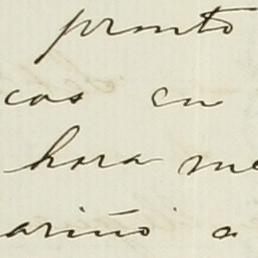 pronto
cos en
hora me
ariño a